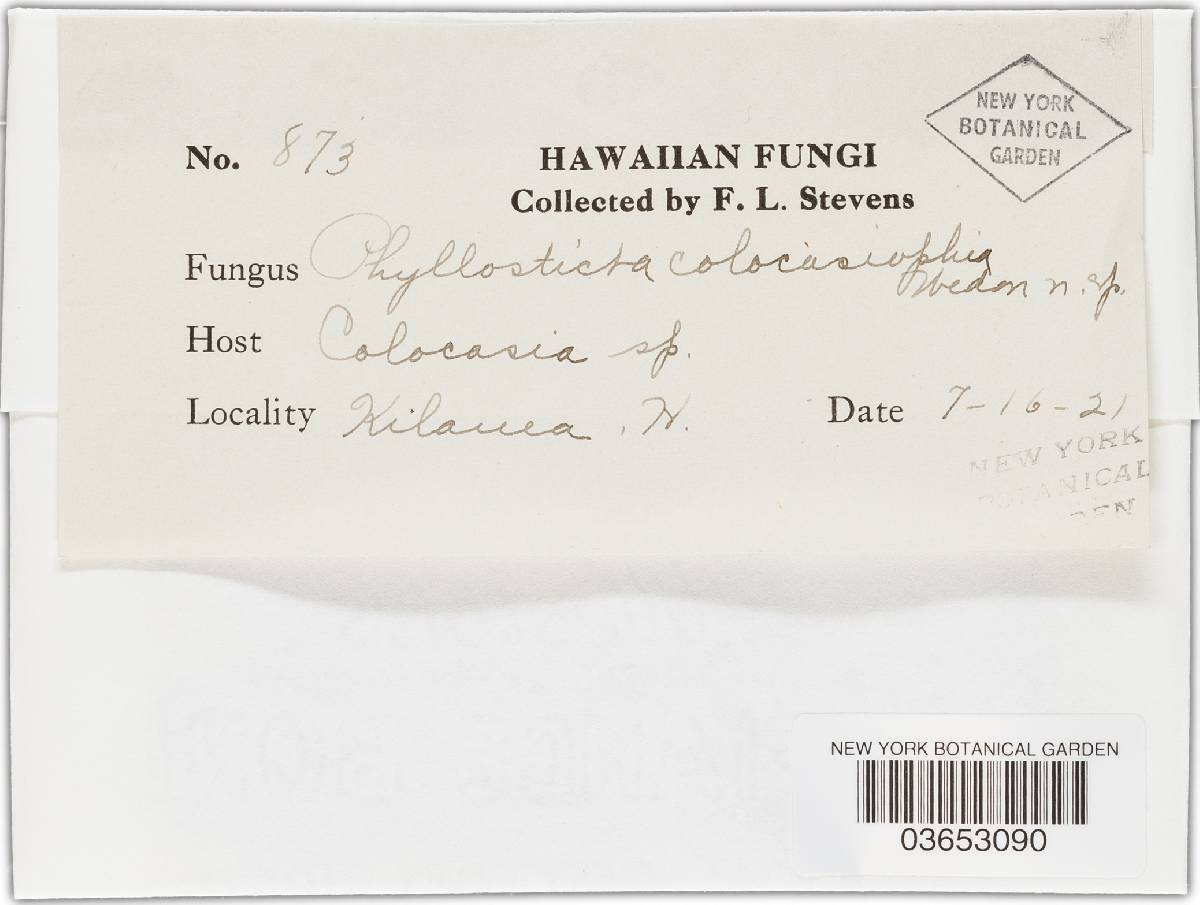 NEW YORK
BOTANICAL
GARDEN
No. 873
HAWAIIAN FUNGI
Collected by F. L. Stevens
Fungus Phyllosticta colocasiophia
Wedon n. sp.
Host Colocasia sp.
Locality Kilauea, H. Date 7-16-21
NEW YORK
BOTANICAL
DEN
NEW YORK BOTANICAL GARDEN
03653090